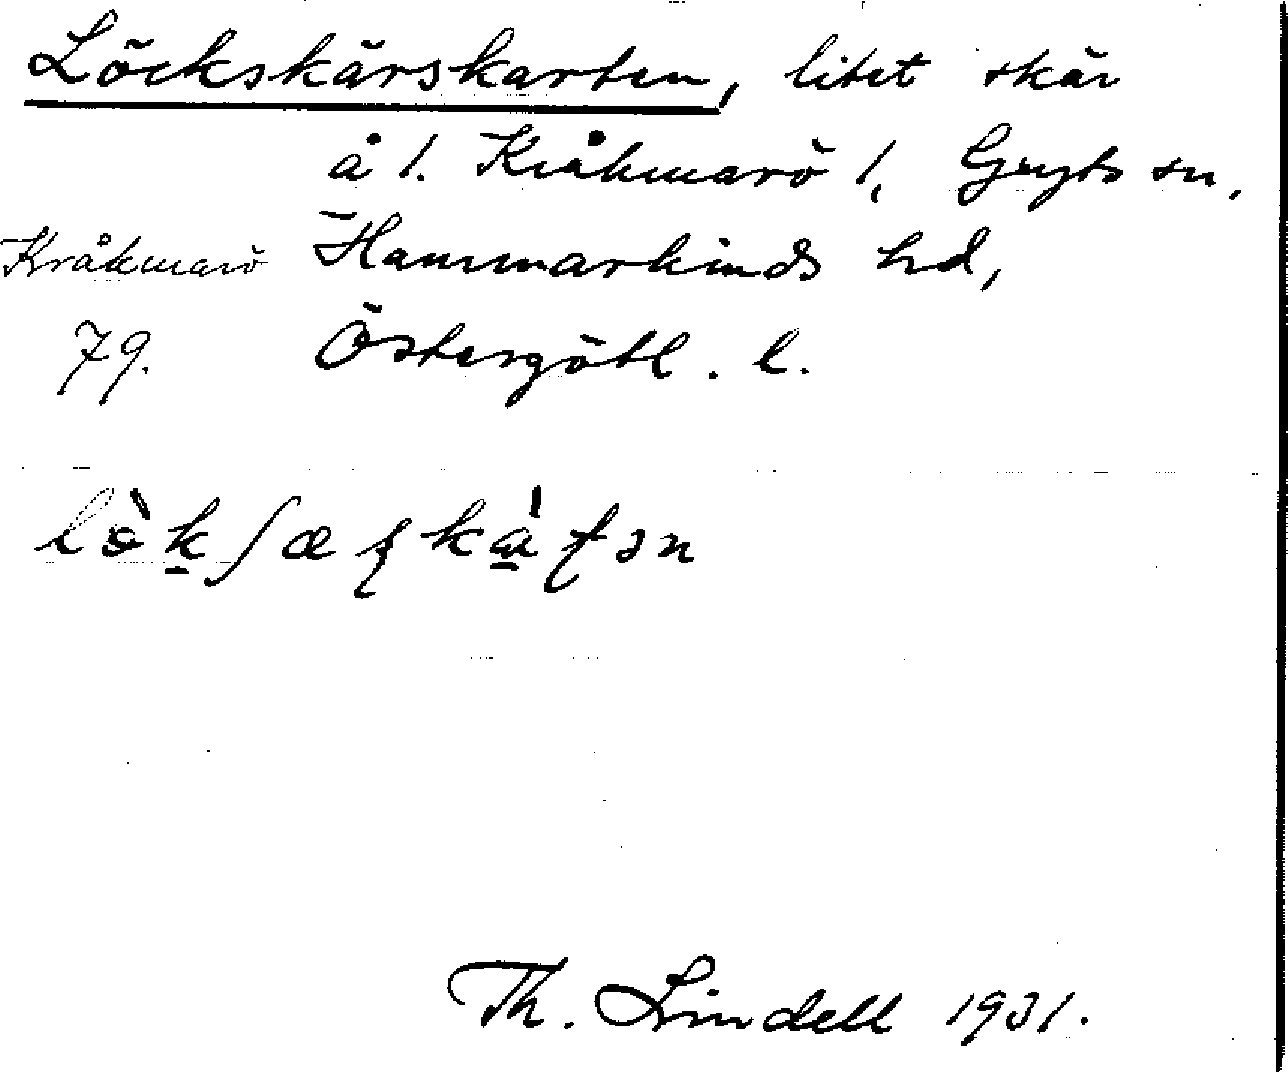 Löckskärskarten, litet skär
å 1. Kråkmarö 1, Gryts sn,
Kråkmarö Hammarkinds hd,
79. Östergötl. l.
Th. Lindell 1931.